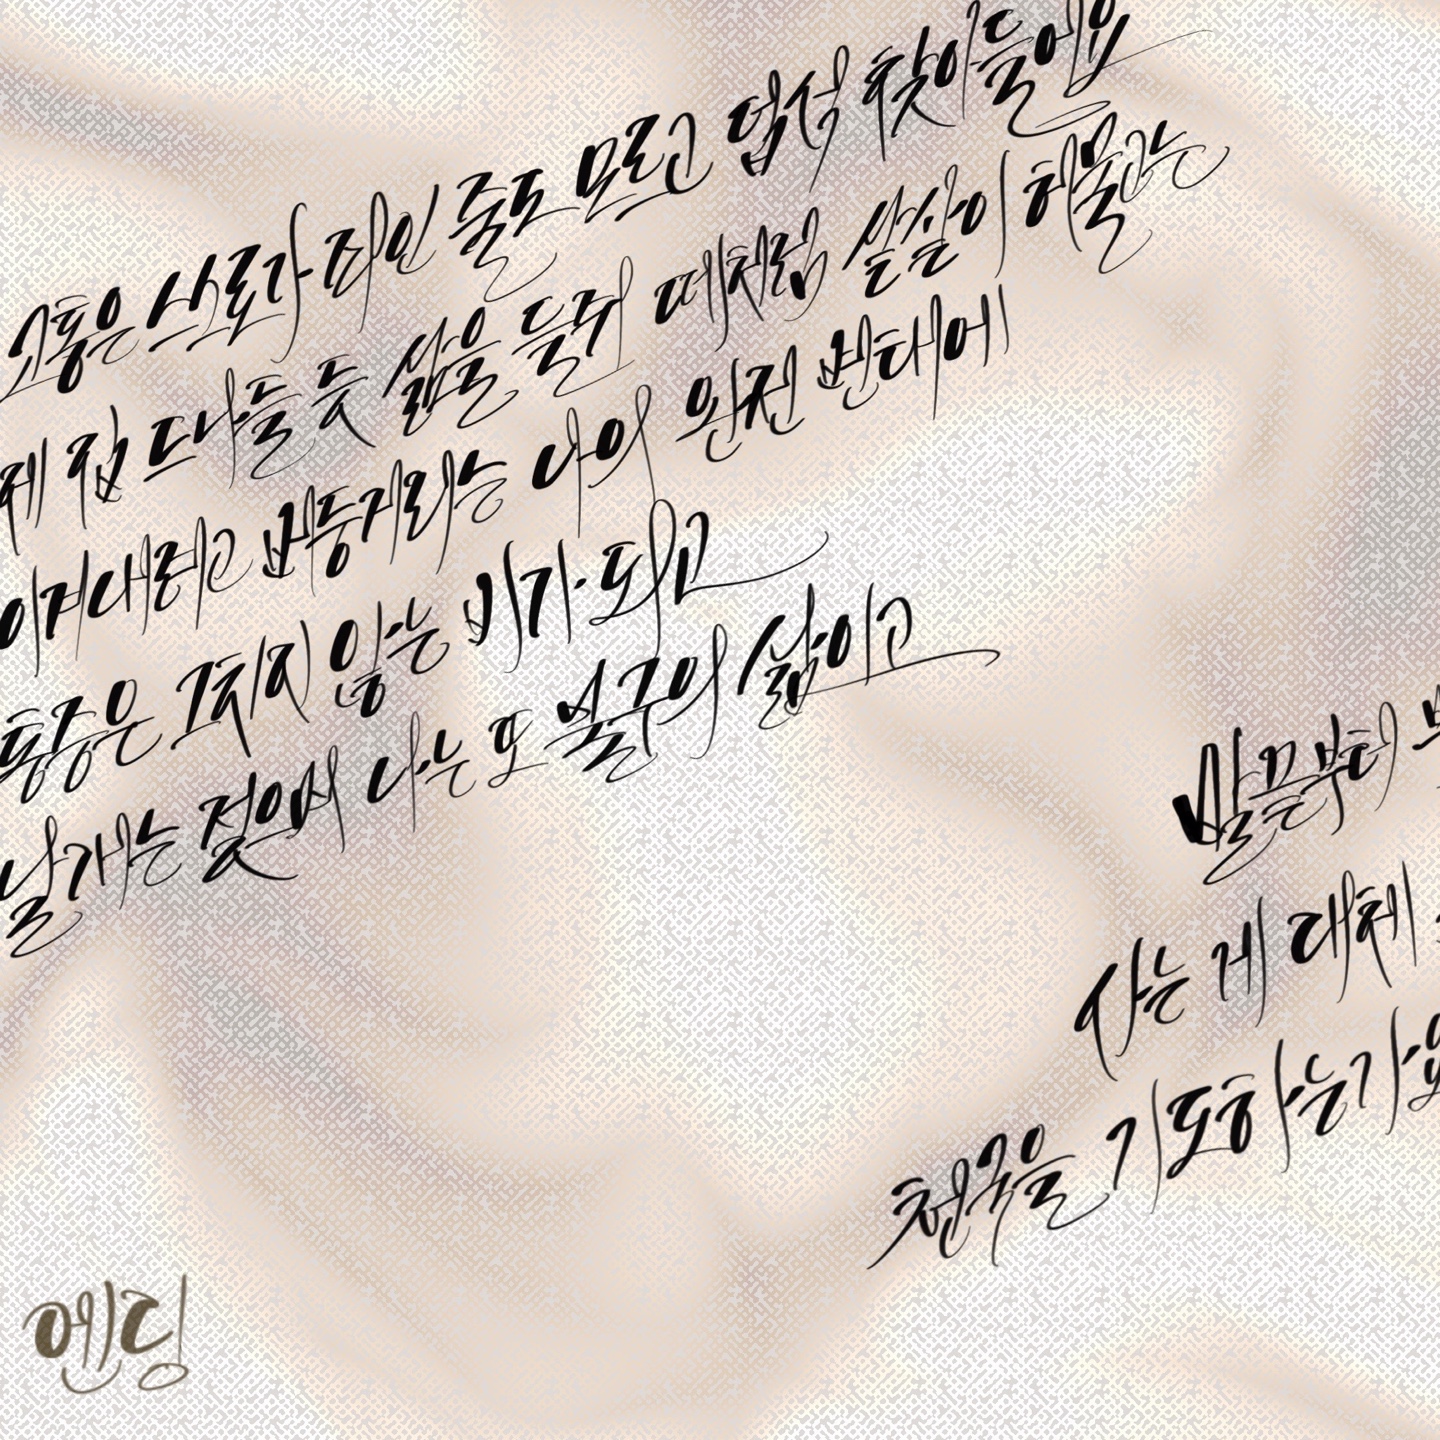 고통은 스스로가 죄인 줄도 모르고 덥석 찾아들어요
제 집 드나들 듯 삶을 들쥐 떼처럼 샅샅이 허물고는
이겨내려고 버둥거리는 나의 완전 반대에
통증은 그치지 않는 비가 되고
날개는 젖은 나는 또 불구의 삶이고
말끝부터
사는 게 대체
천국을 기도하는가요
엔딩